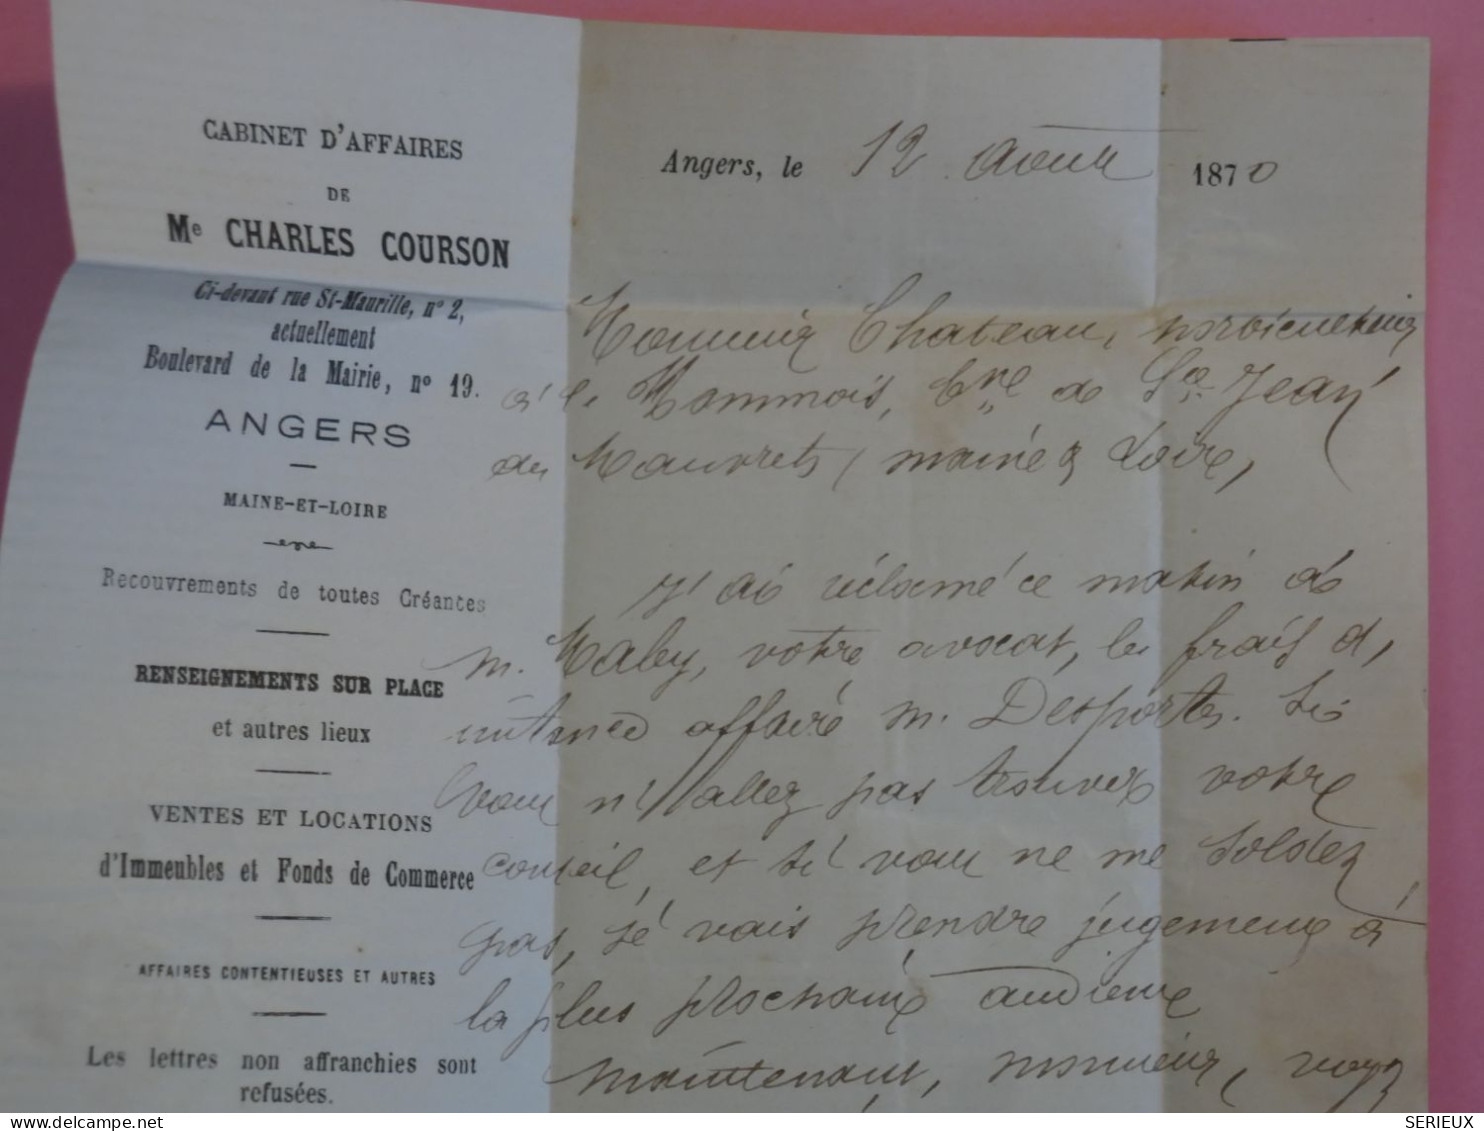 CABINET D'AFFAIRES
DE
Me CHARLES COURSON
Ci-devant rue St-Maurille, n° 2,
actuellement
Boulevard de la Mairie, n° 19.
ANGERS
MAINE-ET-LOIRE
Recouvrements de toutes Créances
RENSEIGNEMENTS SUR PLACE
et autres lieux
VENTES ET LOCATIONS
d'Immeubles et Fonds de Commerce
AFFAIRES CONTENTIEUSES ET AUTRES
Les lettres non affranchies sont
refusées.
Angers, le 12 août 1870
Monsieur Chateau,
à la Mommois, Cne de St Jean
des Mauvrets, maine & Loire,
J'ai réclamé ce matin à
m. Maby, votre avocat, les frais d,
instance affaire m. Desportes. Si
vous n'allez pas trouver votre
conseil, et si vous ne me soldez
pas, je vais prendre jugement à
la plus prochaine audience
maintenant, monsieur, voyez
SERIEUX